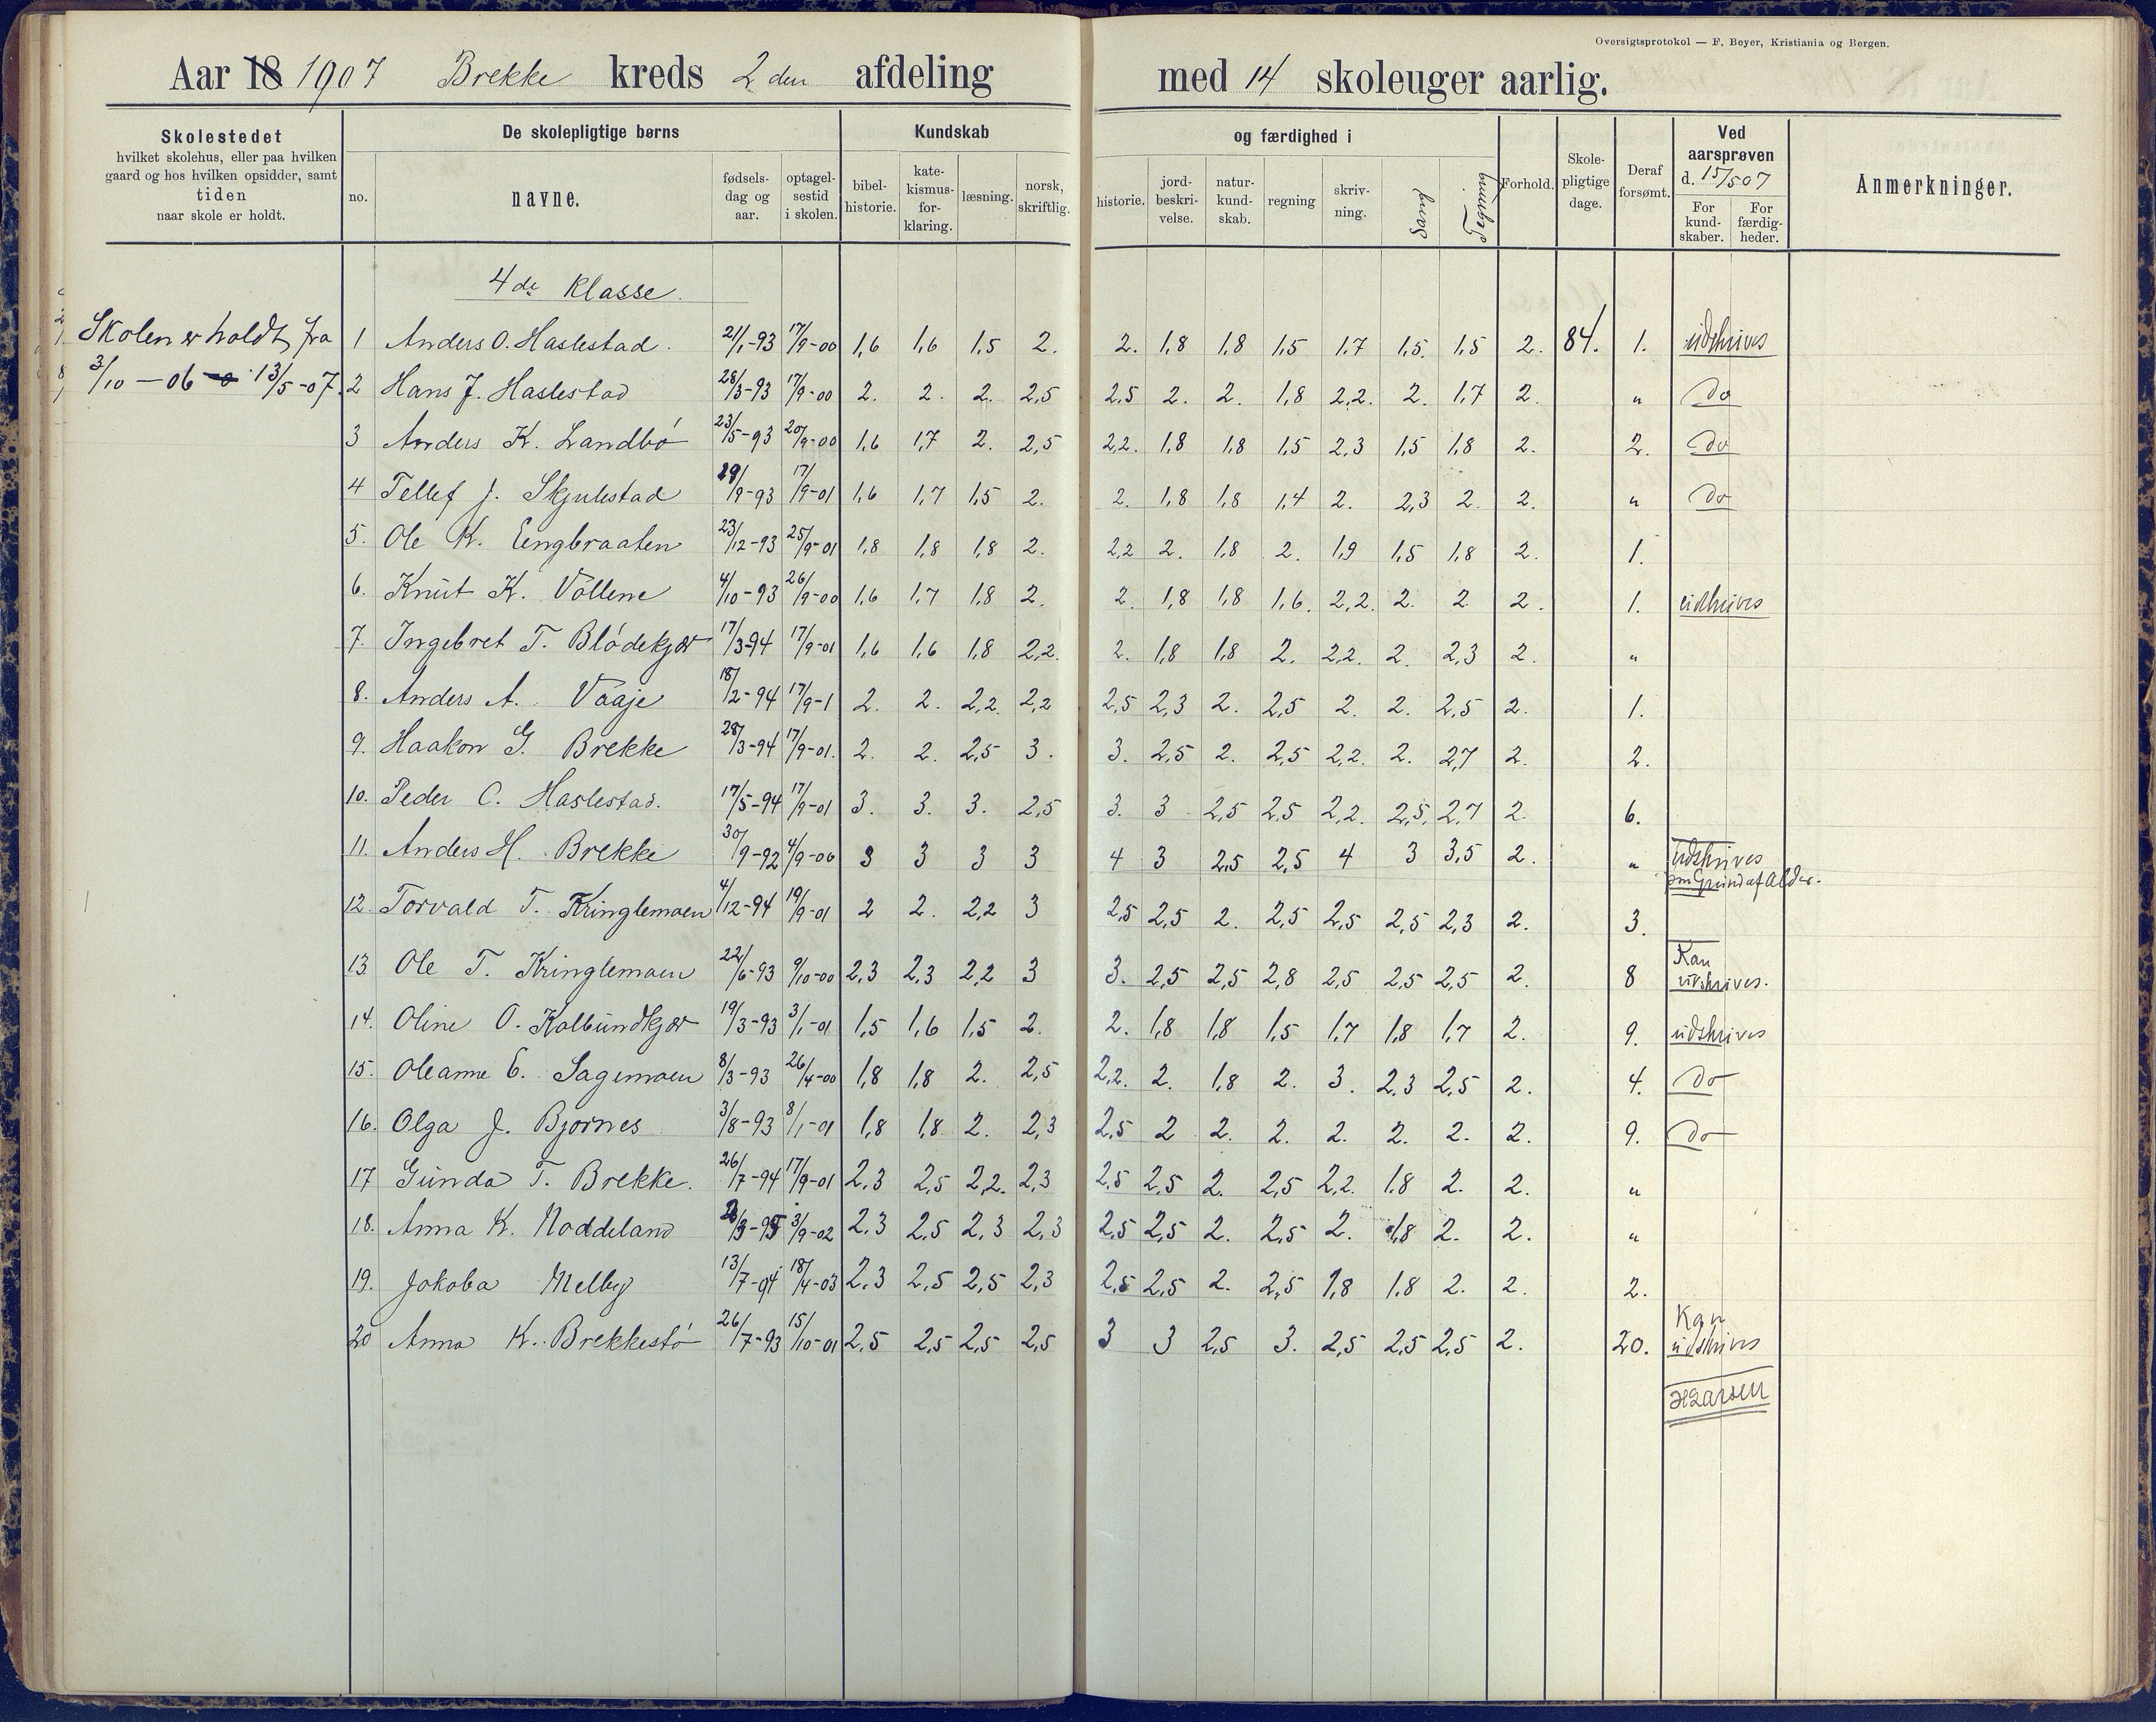 Oversigtsprotokol — F. Beyer, Kristiania og Bergen.
Aar 18 1907 Brekke kreds 2 den afdeling med 14 skoleuger aarlig.
Skolestedet
hvilket skolehus, eller paa hvilken
gaard og hos hvilken opsidder, samt
tiden
naar skole er holdt.
De skolepligtige børns
no.
navne.
fødsels-
dag og
aar.
optagel-
sestid
i skolen.
Kundskab
bibel-
historie.
kate-
kismus-
for-
klaring.
læsning.
norsk,
skriftlig.
og færdighed i
historie.
jord-
beskri-
velse.
natur-
kund-
skab.
regning
skriv-
ning.
Sang
Tegning.
Forhold.
Skole-
pligtige
dage.
Deraf
forsømt.
Ved
aarsprøven
d. 15/5 07
For
kund-
skaber.
For
færdig-
heder.
Anmerkninger.
4de Klasse.
Skolen er holdt fra
3/10 - 06 - 13/5 - 07.
1 Anders O. Haslestad. 21/1-93 17/9-00 1,6 1,6 1,5 2. 2. 1,8 1,8 1,5 1,7 1,5. 1,5 2. 84. 1. udskrives
2 Hans J. Haslestad 28/3-93 17/9-00 2. 2. 2. 2,5 2,5 2. 2. 1,8 2,2. 2. 1,7 2. " do
3 Anders K. Landbø 23/5-93 20/9-00 1,6 1,7 2. 2,5 2,2. 1,8 1,8 1,5 2,3 1,5 1,8 2. 2. do
4 Tellef J. Skjulestad 29/9-93 17/9-01 1,6 1,7 1,5 2. 2. 1,8 1,8 1,4 2. 2,3 2. 2. " do
5. Ole K. Eengbraaten 23/12-93 25/9-01 1,8 1,8 1,8 2. 2,2 2. 1,8 2. 1,9 1,5 1,8 2. 1.
6. Knut K. Vollene 4/10-93 26/9-00 1,6 1,7 1,8 2. 2. 1,8 1,8 1,6. 2,2. 2. 2. 2. 1. udskrives
7. Ingebret T. Blødekjær 17/3-94 17/9-01 1,6 1,6 1,8 2,2. 2. 1,8 1,8 2. 2,2. 2. 2,3 2. "
8. Anders A. Vaaje 18/2-94 17/9-1 2. 2. 2,2. 2,2 2,5 2,3 2. 2,5 2. 2. 2,5 2. 1.
9. Haakon G. Brekke 28/3-94 17/9-01. 2. 2. 2,5 3. 3. 2,5 2. 2,5 2,2. 2. 2,7 2. 2.
10. Peder C. Haslestad. 17/5-94 17/9-01 3. 3. 3. 2,5 3. 3 2,5 2,5 2,2. 2,5. 2,7 2. 6.
11. Anders H. Brekke 30/9-92 4/9-06 3 3 3 3 4 3 2,5 2,5 4 3 3,5 2. " Udskrives
paa Grund af Alder.
12. Torvald T. Kringlemoen 4/12-94 19/9-01 2 2. 2,2 3 2,5 2,5 2. 2,5 2,5 2,5 2,3 2. 3.
13 Ole T. Kringlemoen 22/6-93 9/10-00 2,3 2,3 2,2 3 3. 2,5 2,5 2,8 2,5 2,5 2,5 2. 8 Kan
udskrives.
14. Oline O. Kolbundkjær 19/3-93 3/1-01 1,5 1,6 1,5 2. 2. 1,8 1,8 1,5 1,7 1,8 1,7 2. 9. udskrives
15. Oleanne E. Sagemoen 8/3-93 26/4-00 1,8 1,8 2. 2,5 2,2. 2. 1,8 2. 3. 2,3 2,5 2. 4. do
16. Olga J. Bjørnes 3/8-93 8/1-01 1,8 1,8 2. 2,3 2,5 2 2. 2. 2. 2. 2. 2. 9. do
17 Gunda T. Brekke. 26/7-94 17/9-01 2,3 2,5 2,2. 2,3 2,5 2,5 2. 2,5 2,2. 1,8 2. 2. "
18. Anna K. Noddeland 3/9-02 2,3 2,5 2,3 2,3 2,5 2,5 2. 2,5 2. 1,8 2. 2. "
19. Jokoba Melby 13/7-94 18/4-03 2,3 2,5 2,5 2,3 2,5 2,5 2. 2,5 1,8 1,8 2. 2. 2.
20 Anna K. Brekkestø 26/7-93 15/10-01 2,5 2,5 2,5 2,5 3 3 2,5 3. 2,5 2,5 2,5 2. 20. Kan
udskrives
HLarsen